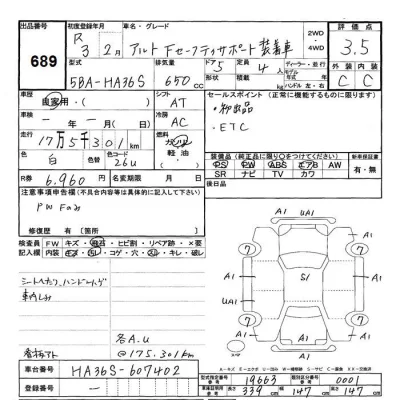 出品番号
689
初度登録年月
R 3 2月
車名・グレード
アルト Fセーフティサポート装着車
2WD
・4WD
評価点
3.5
型式
5BA-HA36S
排気量
650 cc
ドア
5
定員
4人
ディーラー・並行
モデル年式 年
ハンドル 左・右
外装
内装
C
C
車歴
自家用・( )
シフト
AT
セールスポイント(正常に機能するものに限ります)
・卸出品
・ETC
車検
一年 一月
冷房
AC
走行
17万5千301km
燃料
ガソリン
軽油
色
白
色コード
26U
装備品(純正品に限り○をつけてください)
PS PW エアB AW
SR ナビ TV カワ
新車保証書
有・無
R券
6,960円
名変期限 月 日
後日品
注意事項申告欄(不具合含等は具体的に記入して下さい)
修復歴 有( )箇所
検査員記入欄
FW キズ・飛石・ヒビ割・リペア跡・×要
内装 キレ・コゲ・穴・スレ・キレ
車内しみ
各A.U
@175,301km
車台番号
HA36S-607402
登録番号
型式指定番号
19663
類別区分番号
0001
長さ 339
幅 147
高さ 147
A1
UA1
A1
7
7
A1
S1
A1
7
7
A1
UA1
A1